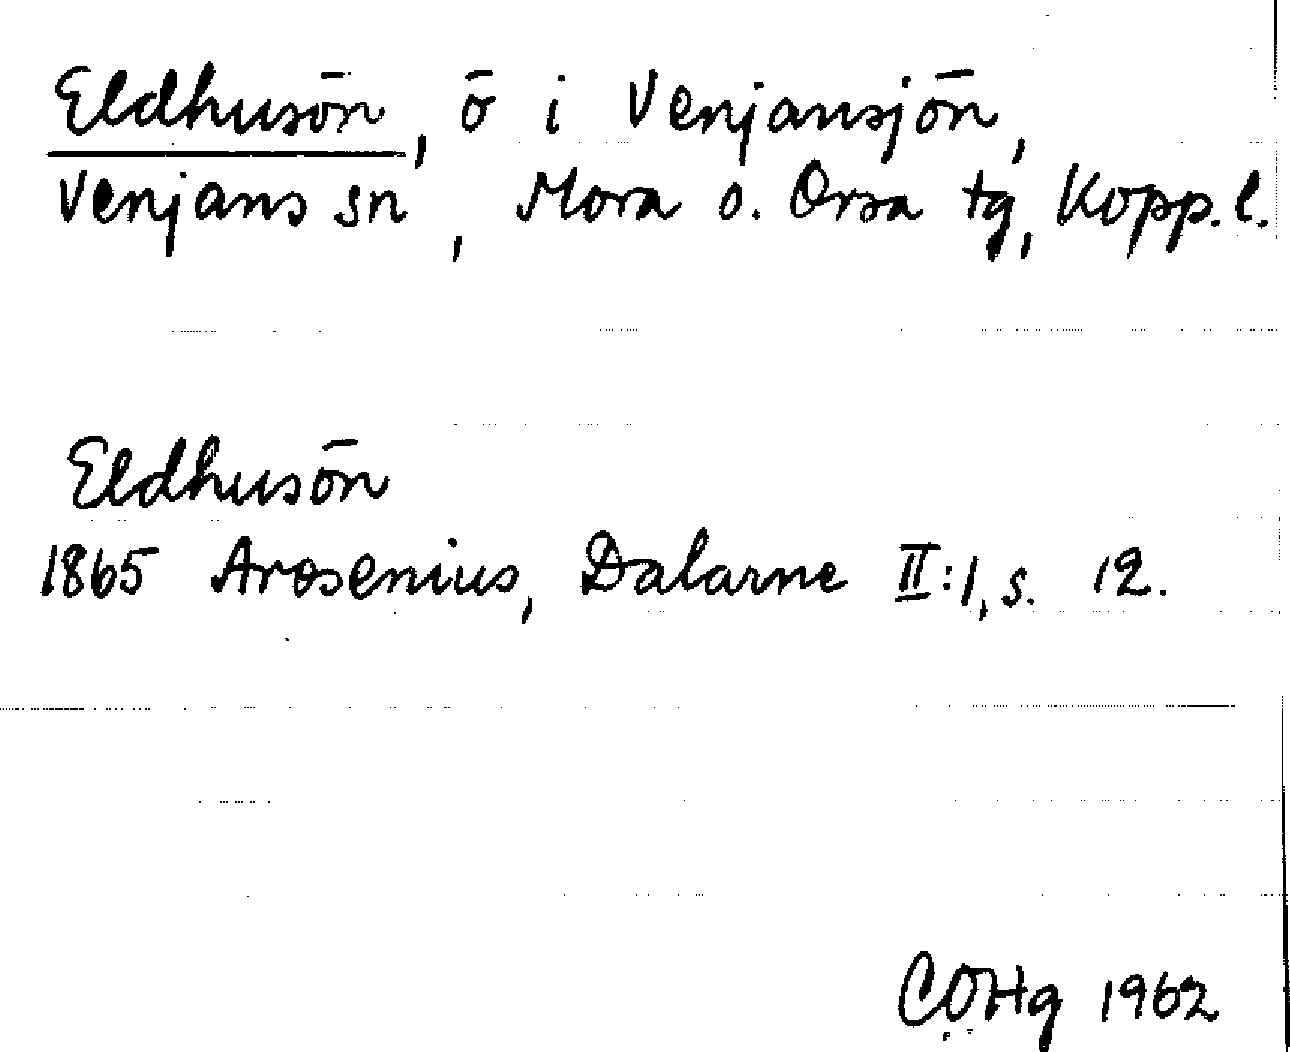 Eldhusön, ö i Venjansjön,
Venjans sn, Mora o. Orsa tg, Kopp. l.
Eldhusön
1865 Arosenius, Dalarne II:1, s. 12.
COHg 1962